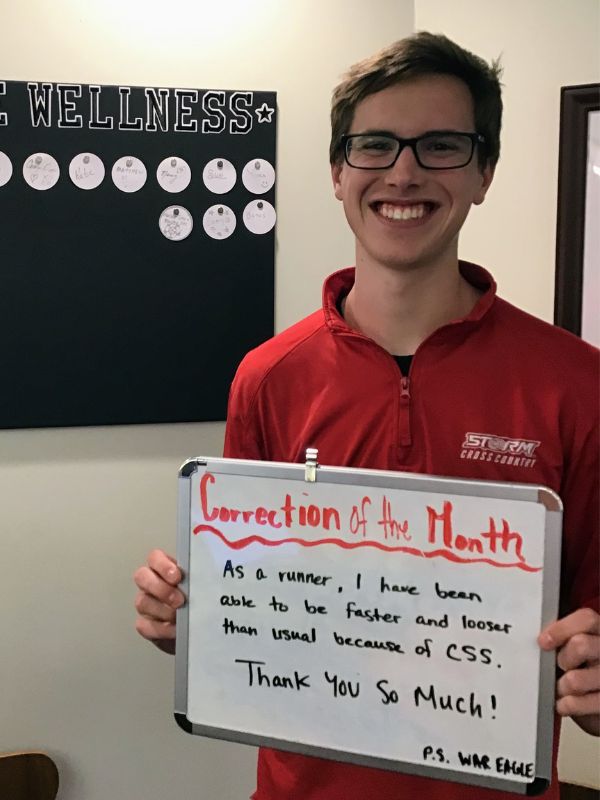 WELLNESS
STORM
CROSS COUNTRY
Correction of the Month
As a runner, I have been
able to be faster and looser
than usual because of CSS.
Thank You So Much!
P.S. WAR EAGLE